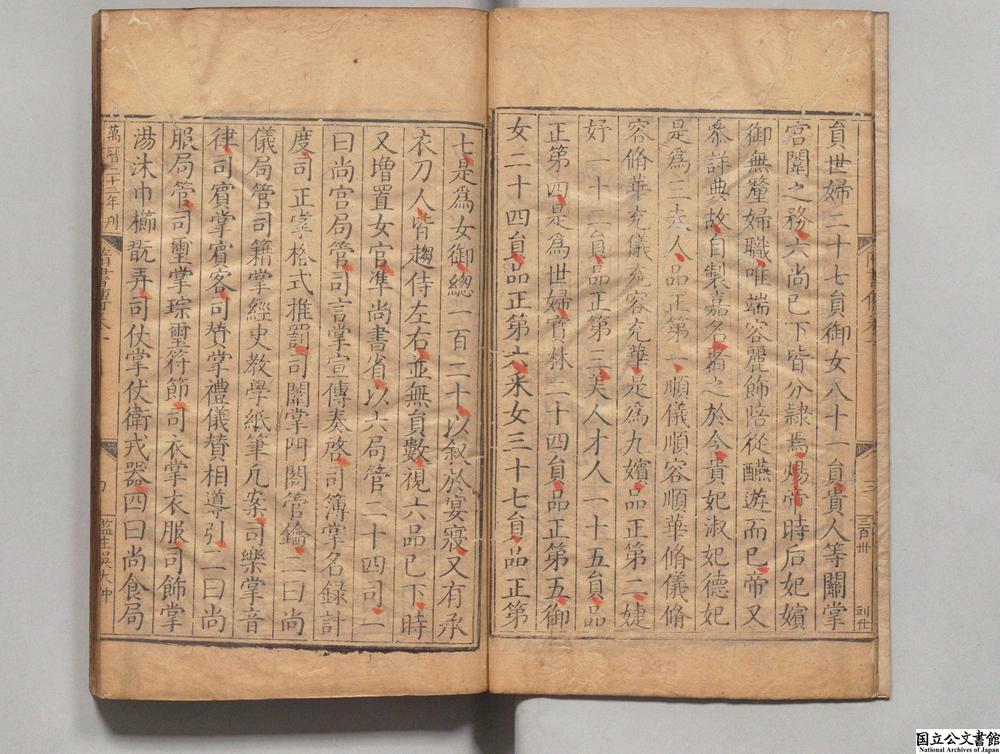 員世婦二十七員御女八十一員貴人等關掌
宮闈之務六尚已下皆分隷焉煬帝時后妃嬪
御無釐婦職唯端容麗飾陪從醼遊而已帝又
叅詳典故自製嘉名著之於今貴妃淑妃德妃
是爲三夫人品正第一順儀順容順華脩儀脩
容脩華充儀充容充華是爲九嬪品正第二婕
妤一十二員品正第三美人才人一十五員品
正第四是爲世婦寳林二十四員品正第五御
女二十四員品正第六采女三十七員品正第
七是爲女御總一百二十以叙於宴寢又有承
衣刀人皆趨侍左右並無員數視六品已下時
又增置女官凖尚書省以六局管二十四司一
曰尚宫局管司言掌宣傳奏啓司簿掌名録計
度司正掌格式推罰司闈掌門閤管鑰二曰尚
儀局管司籍掌經史教學紙筆几案司樂掌音
律司賓掌賓客司賛掌禮儀賛相導引三曰尚
服局管司璽掌琮璽符節司衣掌衣服司飾掌
湯沐巾櫛翫弄司仗掌仗衛戎器四曰尚食局
萬曆二十二年刋
隋書傳卷一
三
三百卅
國立公文書館
National Archives of Japan